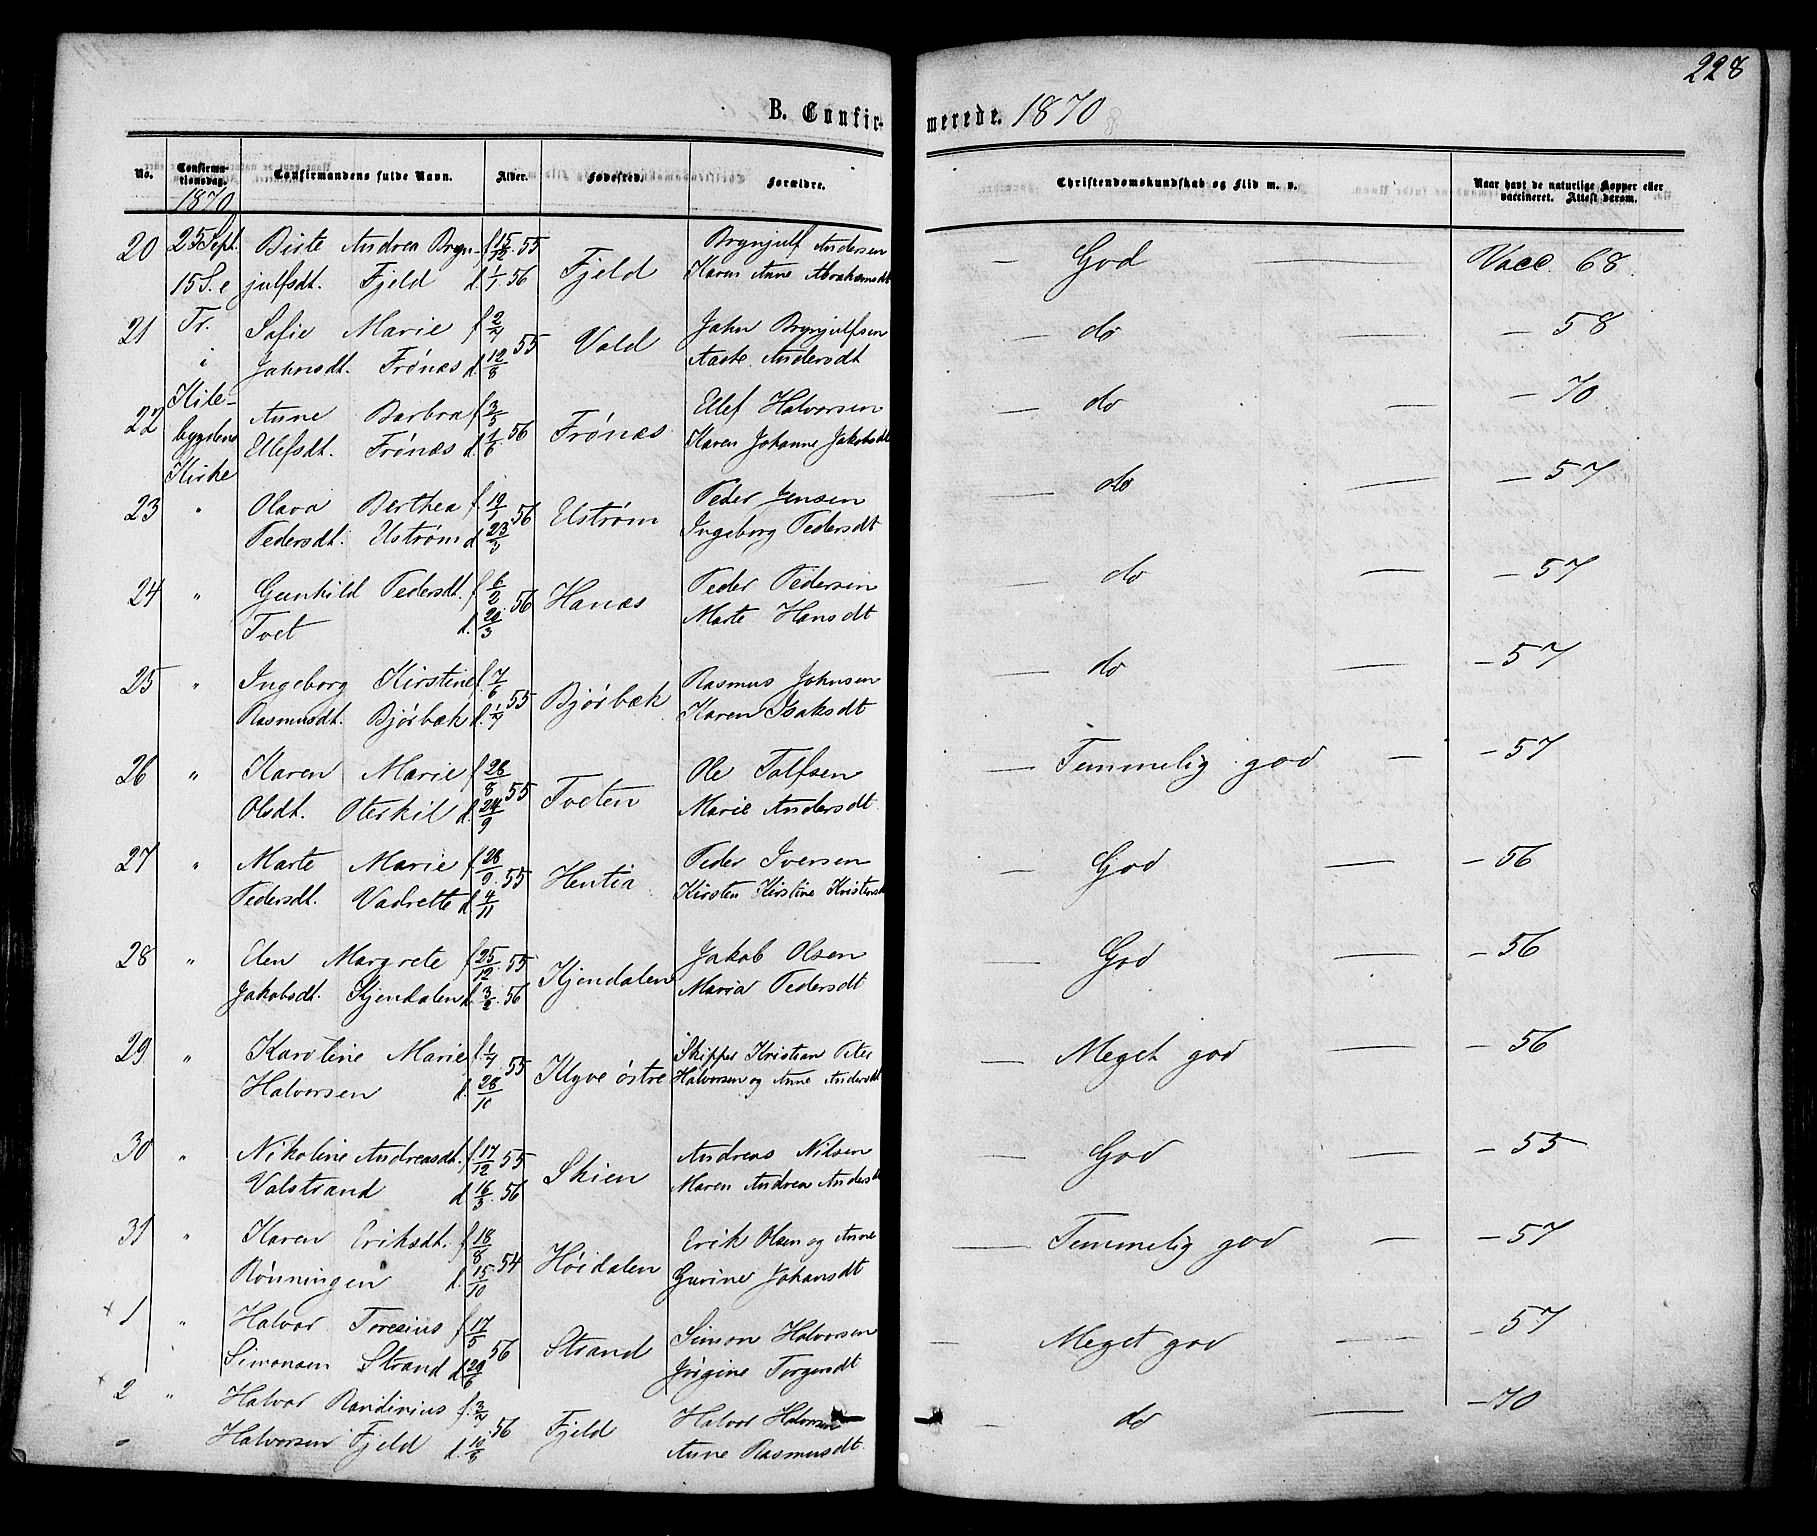 228
B. Confirmerede. 1870
No.
Confirmationsdag.
Confirmandens fulde Navn.
Alder.
Fødested.
Forældre.
Christendomskundskab og Flid m. v.
Naar havt de naturlige Kopper eller vaccineret. Attest derom.
1870
20 25 Sept. Birte Andrea Bryn- f. 15/12. 55 Fjeld Brynjulf Andersen — God — Vacc. 68.
15 S. e julfsdt. Fjeld d. 1/1 56 Karen Anne Abrahamsdt
21 Tr. Sofie Marie f. 2/7 55 Vold Jahn Brynjulfsen — do — — 58
i Jahnsdt. Frønæs d. 12/8 Aaste Andersdt
22 Kile- Anne Barbra f. 3/5 56 Frønæs Ellef Halvorsen — do — — 70
bygdens Ellefsdt. Frønæs d. 1/6 Karen Johanne Jakobsdt
Kirke
23 " Olava Berthea f. 19/1 56 Elstrøm Peder Jensen — do — — 57
Pedersdt. Elstrøm d. 23/3 Ingeborg Pedersdt
24 " Gunhild Pedersdt. f. 6/2 56 Hanæs Peder Pedersen — do — — 57
Tvet d. 20/3 Marte Hansdt
25 " Ingeborg Kirstine f. 7/6 55 Bjørbæk Rasmus Johnsen — do — — 57
Rasmusdt. Bjørbæk d. 1/7 Karen Isaksdt
26 " Karen Marie f. 28/8 55 Tveten Ole Tolfsen — Temmelig god — — 57
Olsdt. Oterkil d. 24/9 Marie Andersdt.
27 " Marte Marie f. 28/9 55 Hentia Peder Iversen — God — — 56
Pedersdt. Vadrette d. 4/11 Kirsten Kirstine
28 " Elen Margrete f. 25/12. 55 Kjendalen Jakob Olsen — God — — 56
Jakobsdt. Kjendalen d. 3/2. 56 Maria Pedersdt
29 " Karoline Marie f. 1/7 55 Klyve østre Skipper Kristian Peter — Meget god — — 56
Halvorsen d. 28/10 Halvorsen og Anne Andersdt
30 " Nikoline Andreasdt. f. 17/12 55 Skien Andreas Nilsen — God — — 55
Valstrand d. 16/3. 56 Maren Andrea Andersd
31 " Karen Eriksdt. f. 18/8 54 Høidalen Erik Olsen og Anne — Temmelig god — — 57
Rønningen d. 15/10 Gurine Johansdt
x 1 " Halvor Toresius f. 17/5 56 Strand Simon Halvorsen — Meget god — — 57
Simonsen Strand d. 29/6 Jørgine Torgersdt
x 2 " Halvor Randinius f. 3/7 56 Fjeld Halvor Halvorsen — do — — 70
Halvorsen Fjeld d. 10/8 Anne Rasmusdt.